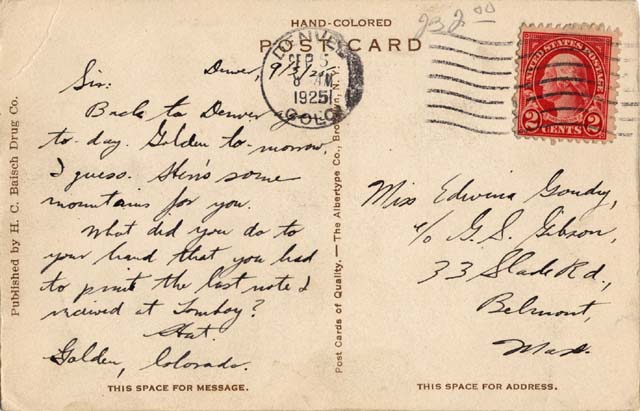 HAND-COLORED
POST CARD
232.00
DENVER
SEP 5
8 AM
1925
COLO
UNITED STATES POSTAGE
2 CENTS 2
Denver, 9/5/25
Sir:
Back to Denver
to-day. Golden to-morrow,
I guess. Here's some
mountains for you.
What did you do to
your hand that you had
to print the last note I
received at Tomboy?
Golden, Colorado.
Miss Edwina Goudy,
c/o G. S. Gibson,
33 Slade Rd.,
Belmont,
Mass.
Published by H. C. Baisch Drug Co.
Post Cards of Quality. — The Albertype Co., Brooklyn, N. Y.
THIS SPACE FOR MESSAGE.
THIS SPACE FOR ADDRESS.